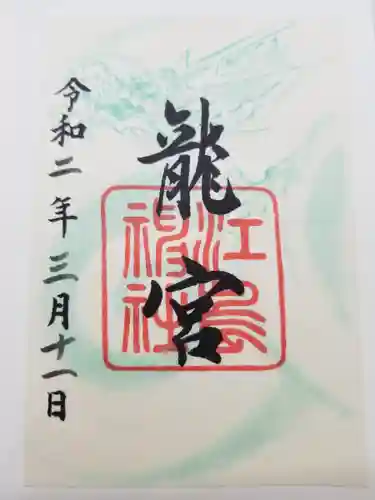 龍宮
江島神社
令和二年三月十一日